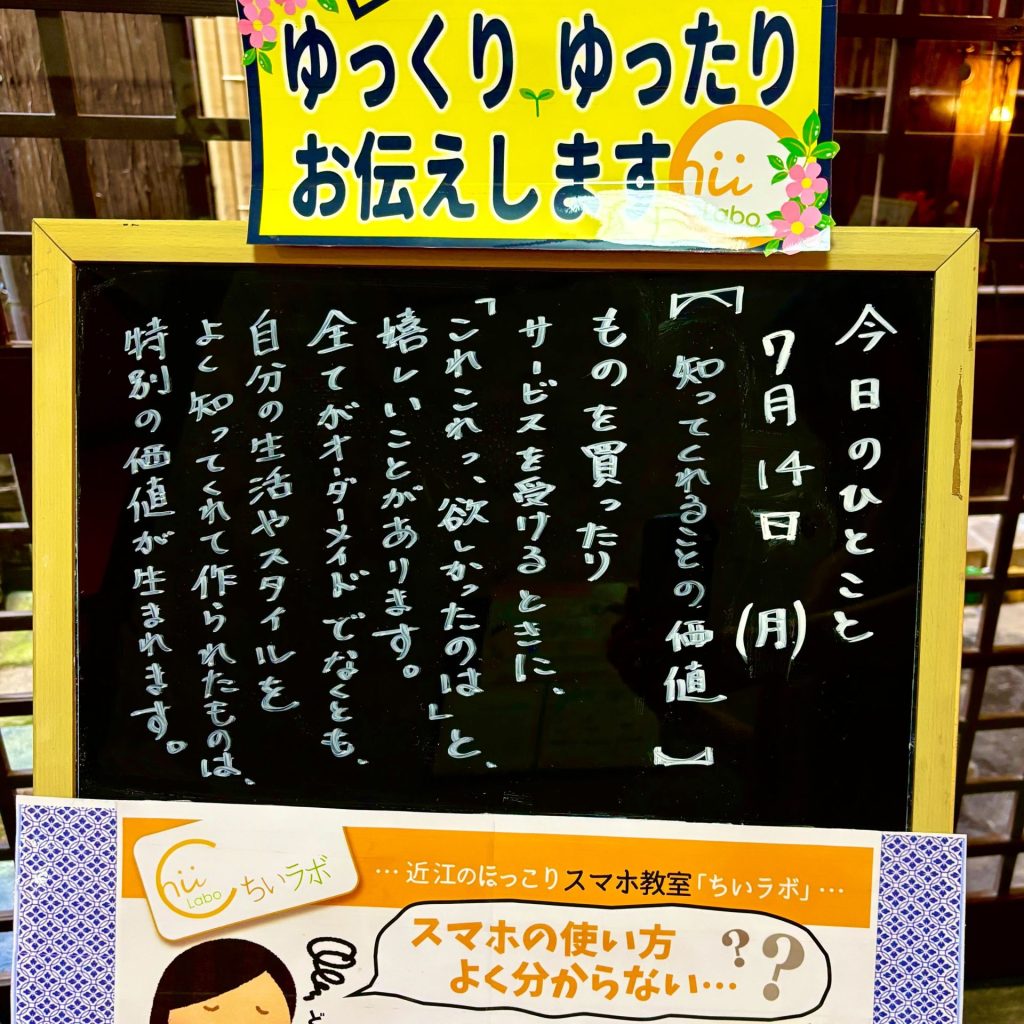 ゆっくり ゆったり
お伝えします
hii
Labo
今日のひとこと
7月14日(月)
【知ってくれることの価値】
ものを買ったり
サービスを受けるときに、
「これこれっ、欲しかったのは」と、
嬉しいことがあります。
全てがオーダーメイドでなくとも、
自分の生活やスタイルを
よく知ってくれて作られたものは、
特別の価値が生まれます。
Chii Labo ちいラボ
…近江のほっこりスマホ教室「ちいラボ」…
スマホの使い方
よく分からない…???
ど